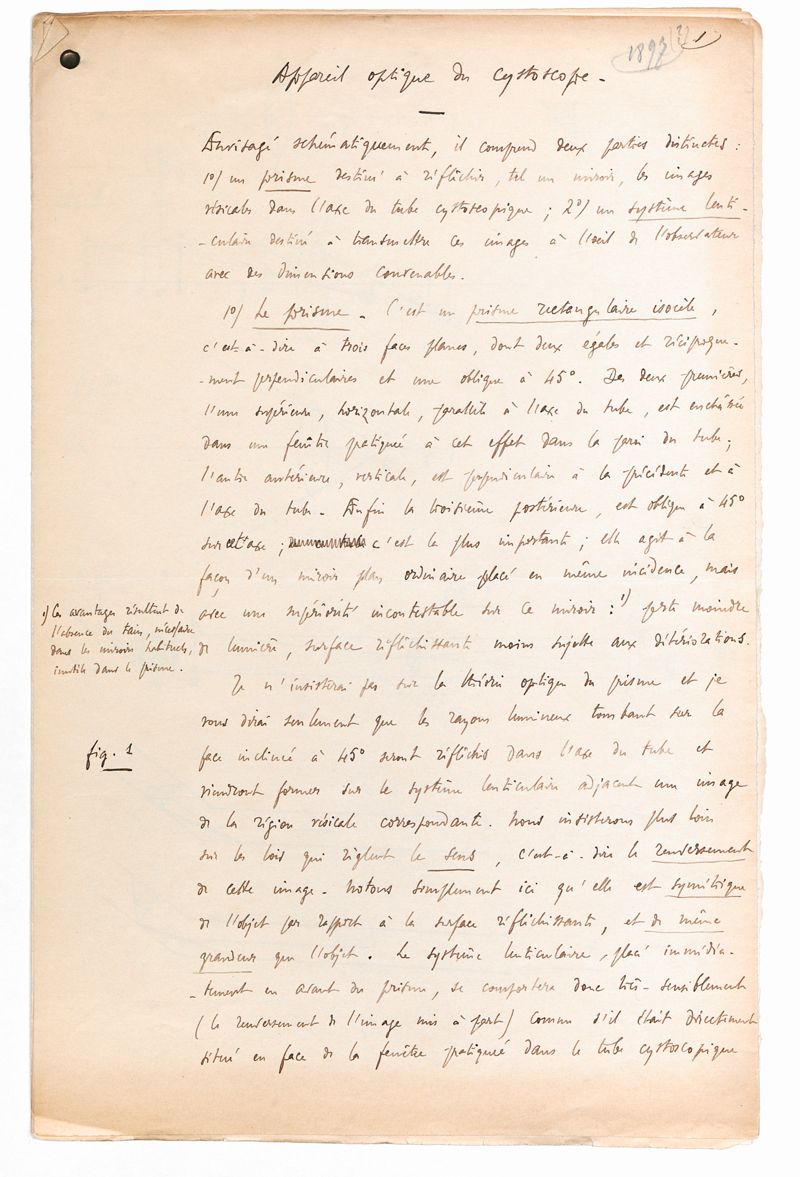 1897 (?) 1
Appareil optique du cystoscope -
Envisagé schématiquement, il comprend deux parties distinctes :
1º/ un prisme destiné à réfléchir, tel un miroir, les images
vésicales dans l'axe du tube cystoscopique ; 2º/ un système lenti-
-culaire destiné à transmettre ces images à l'œil de l'observateur
avec des dimensions convenables.
1º/ Le prisme - C'est un prisme rectangulaire isocèle,
c'est-à-dire à trois faces planes, dont deux égales et réciproque-
-ment perpendiculaires et une oblique à 45º. Des deux premières,
l'une supérieure, horizontale, parallèle à l'axe du tube, est enchâssée
dans une fenêtre pratiquée à cet effet dans la paroi du tube ;
l'autre antérieure, verticale, est perpendiculaire à la précédente et à
l'axe du tube - Enfin la troisième postérieure, est oblique à 45º
sur cet axe ; c'est la plus importante ; elle agit à la
façon d'un miroir plan ordinaire placé en même incidence, mais
avec une supériorité incontestable sur ce miroir : 1) perte moindre
de lumière, surface réfléchissante moins sujette aux détériorations.
1) Ces avantages résultent de
l'absence du tain, nécessaire
dans les miroirs habituels,
inutile dans le prisme.
Je n'insisterai pas sur la théorie optique du prisme et je
vous dirai seulement que les rayons lumineux tombant sur la
fig. 1
face inclinée à 45º seront réfléchis dans l'axe du tube et
viendront former sur le système lenticulaire adjacent une image
de la région vésicale correspondante. Nous insisterons plus loin
sur les lois qui règlent le sens, c'est-à-dire le renversement
de cette image - Notons simplement ici qu'elle est symétrique
de l'objet par rapport à la surface réfléchissante, et de même
grandeur que l'objet. Le système lenticulaire, placé immédia-
-tement en avant du prisme, se comportera donc très-sensiblement
(le renversement de l'image mis à part) comme s'il était directement
situé en face de la fenêtre pratiquée dans le tube cystoscopique